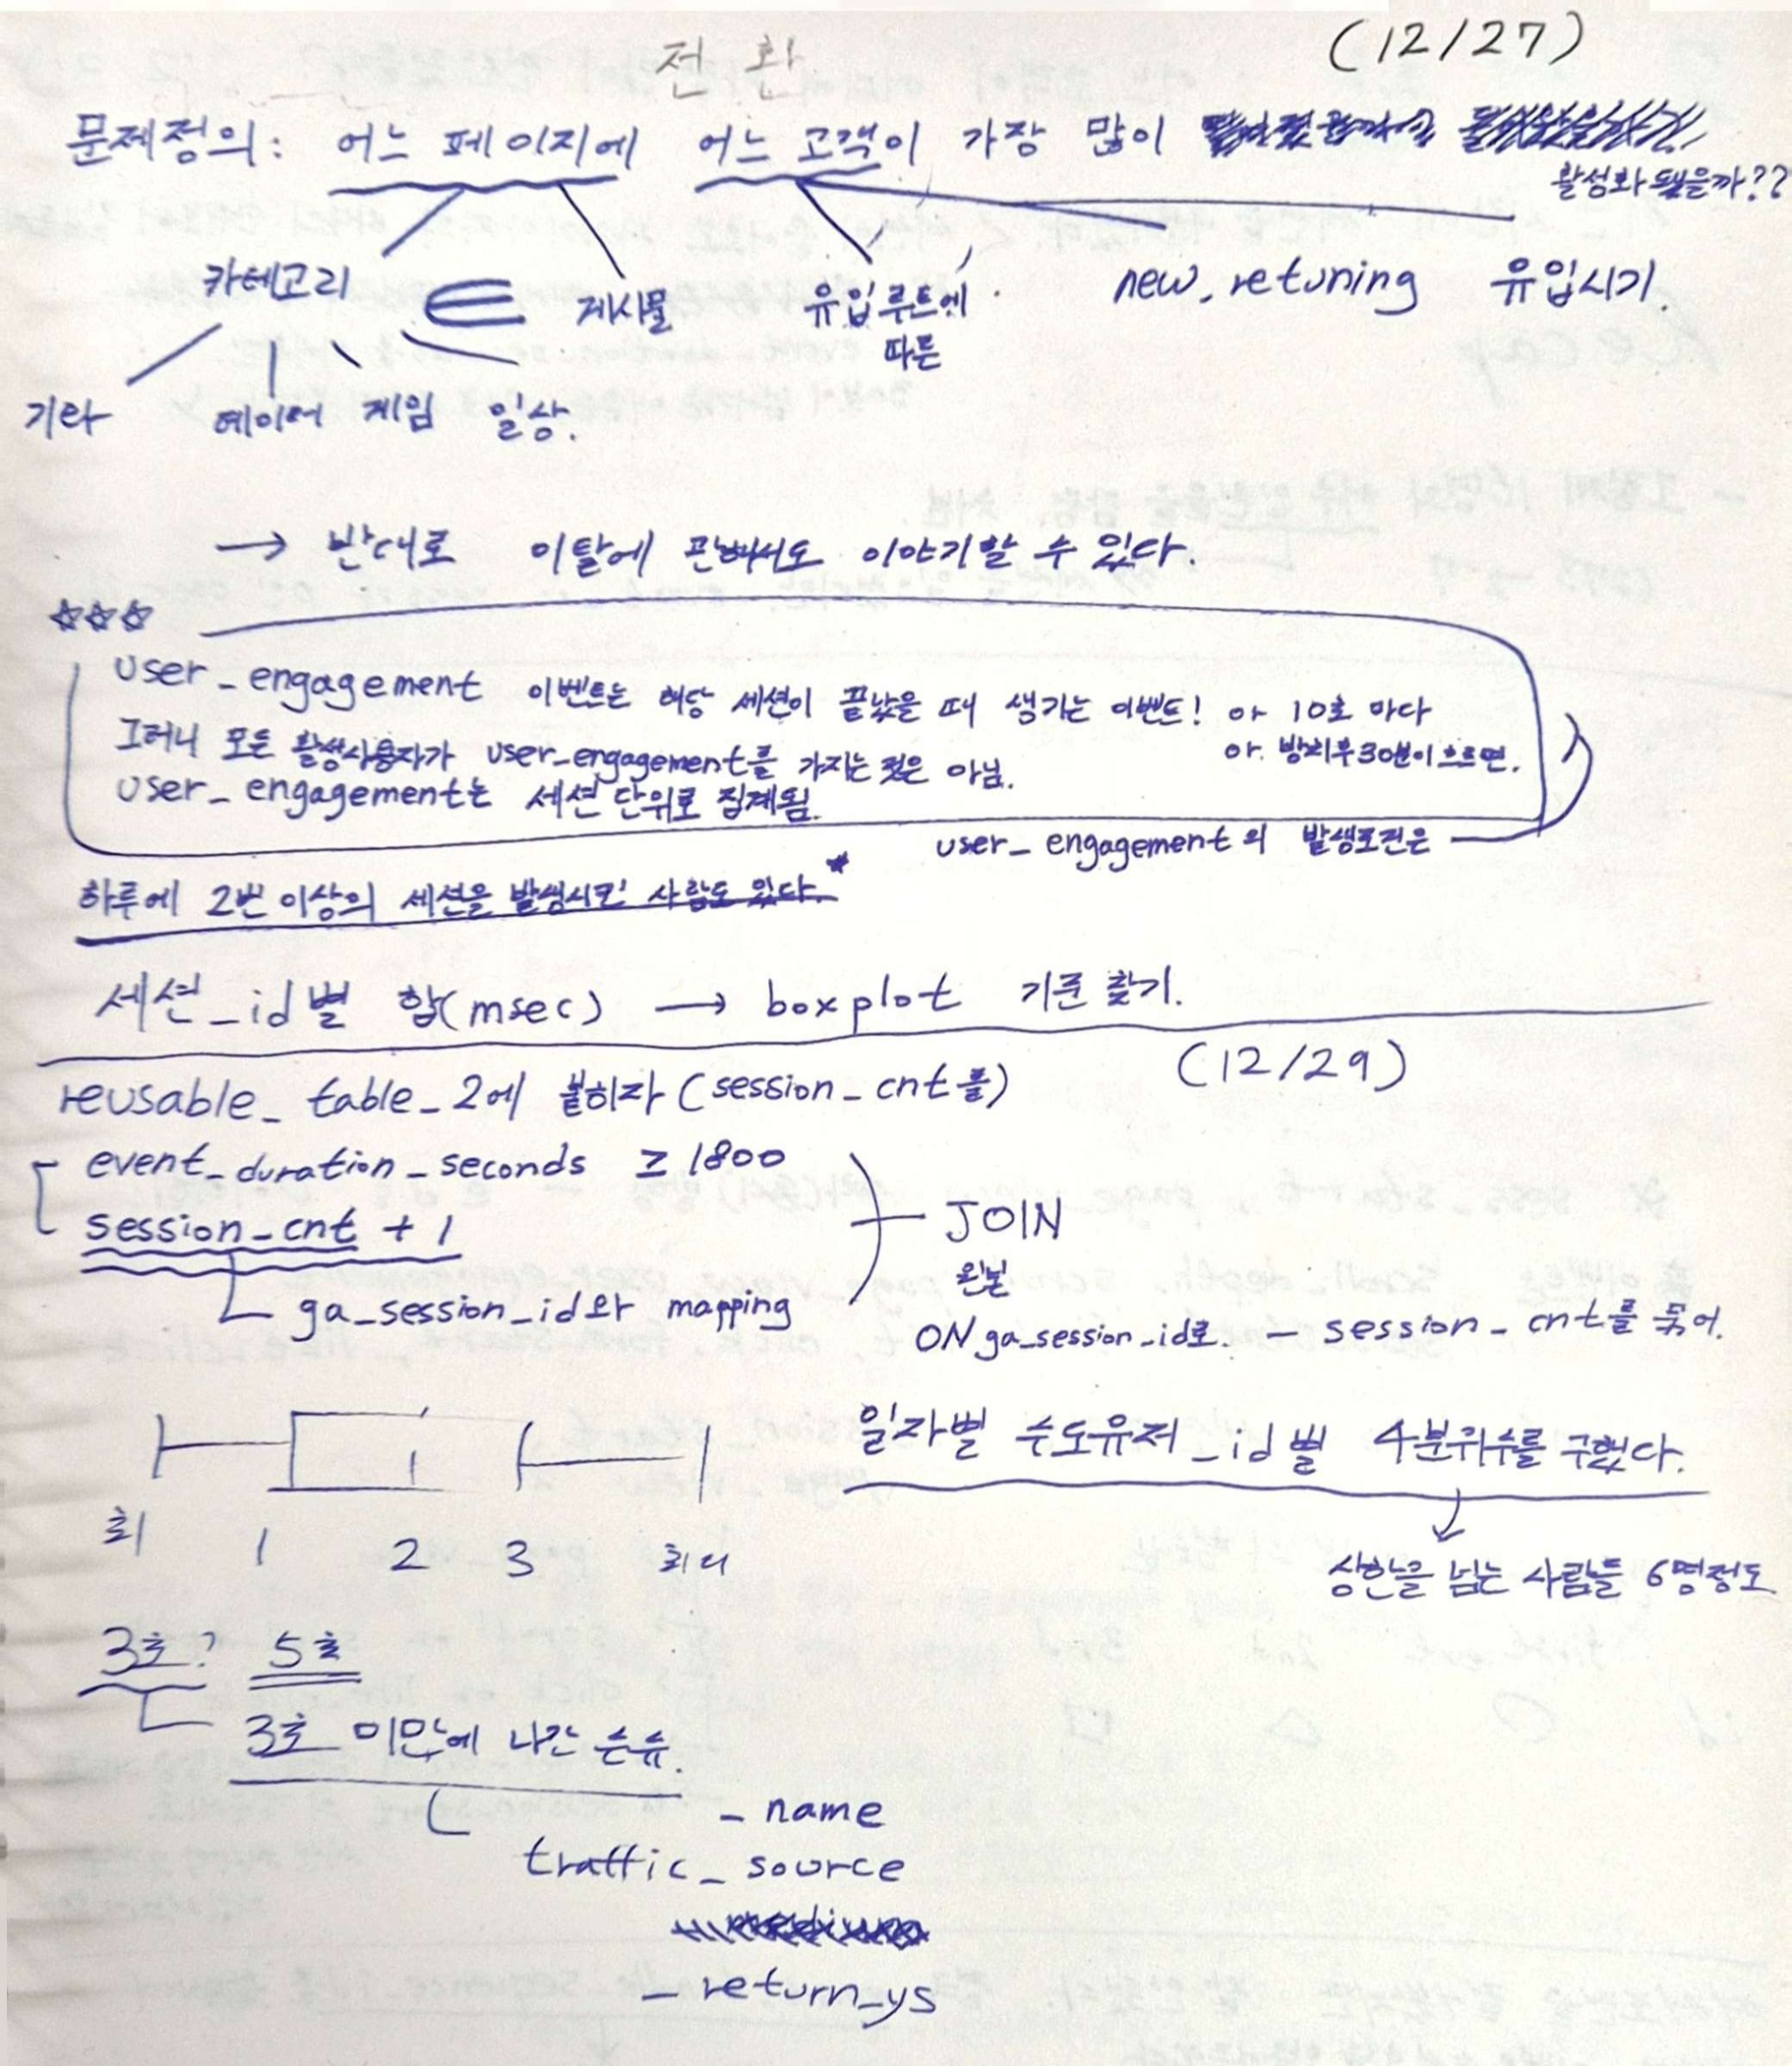 전환
(12/27)
문제정의: 어느 페이지에 어느 고객이 가장 많이
활성화 됐을까??
카테고리 ∈ 게시물 유입루트에 new_retuning 유입시기.
따른
기타 데이터 게임 일상.
→ 반대로 이탈에 관해서도 이야기할 수 있다.
☆☆☆
user_engagement 이벤트는 해당 세션이 끝났을 때 생기는 이벤트! or 10초 마다
그러니 모든 활성사용자가 user_engagement를 가지는 것은 아님. or. 방치후 30분이 흐르면.
user_engagement는 세션 단위로 집계됨.
user_engagement의 발생조건은
하루에 2번 이상의 세션을 발생시킨 사람도 있다.*
세션_id별 합(msec) → boxplot 기준 찾기.
(12/29)
reusable_table_2에 붙히자 (session_cnt를)
event_duration_seconds ≥ 1800
session_cnt + 1
JOIN
ga_session_id와 mapping
원본
ON ga_session_id로. — session_cnt를 묶어.
일자별 수도유저_id별 4분위수를 구했다.
최 1 2 3 최대
상한을 넘는 사람들 6명정도
3초? 5초
3초 미만에 나간 순수.
_ name
traffic_source
_ return_ys